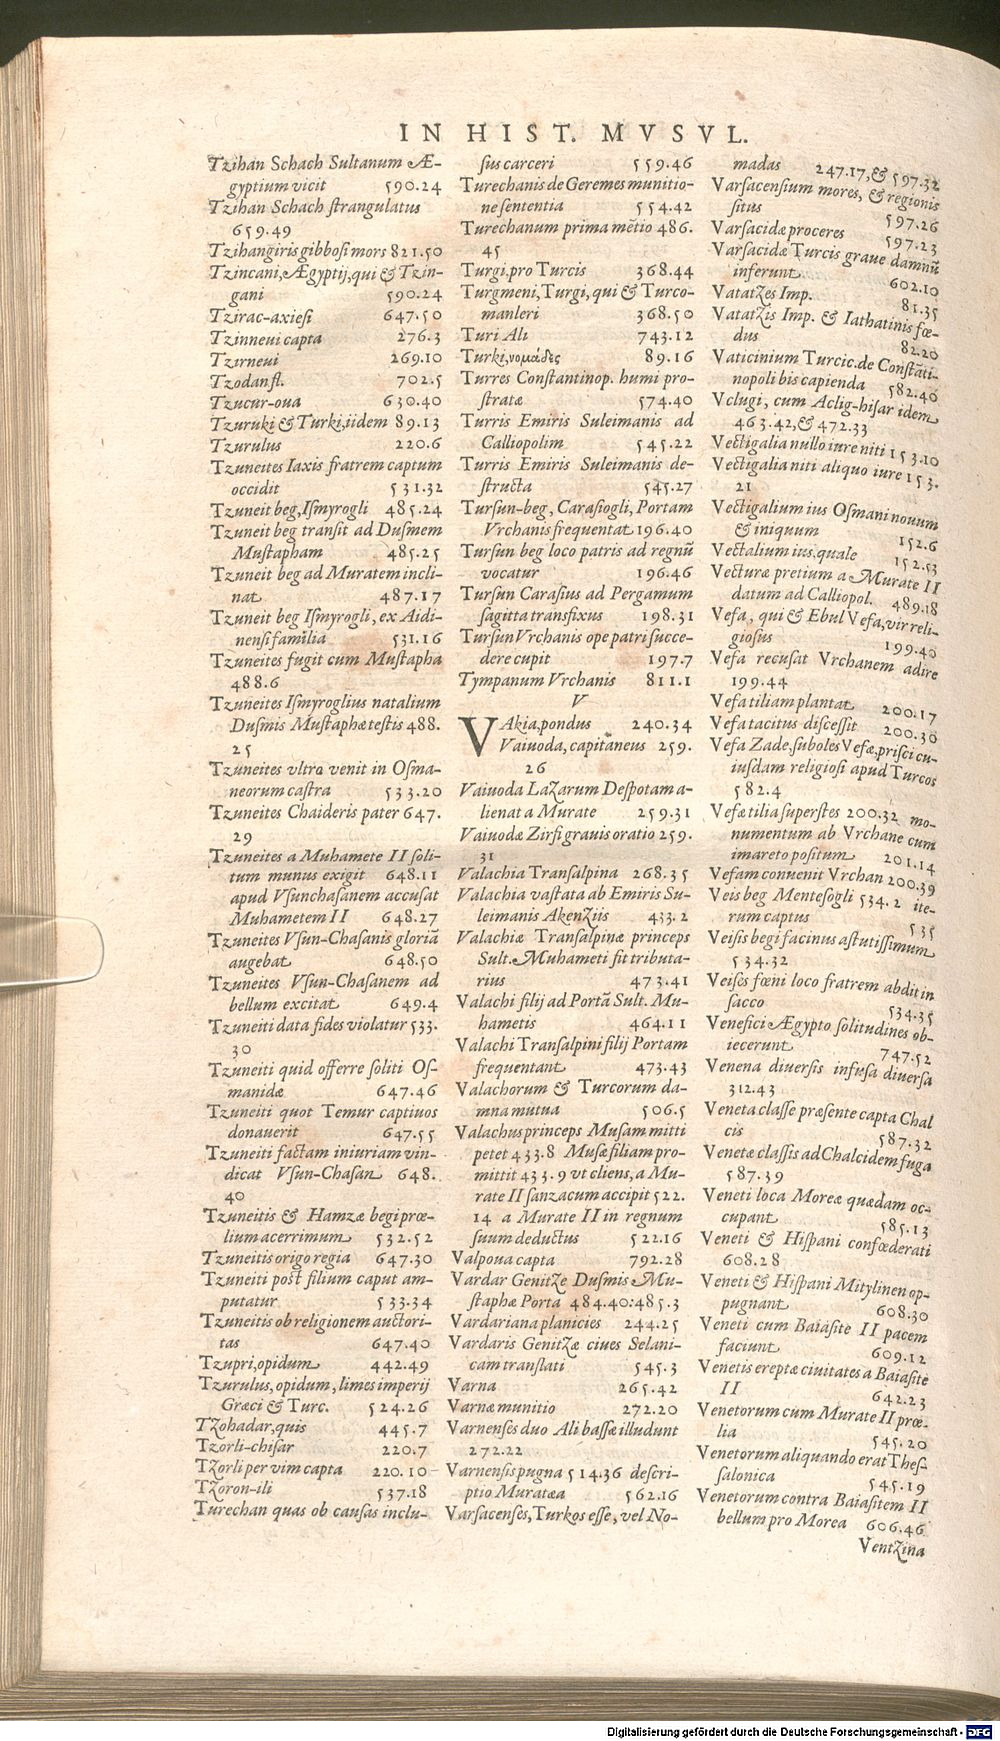 IN HIST. MVSVL.
Tzihan Schach Sultanum Æ-
gyptium vicit 590.24
Tzihan Schach strangulatus
659.49
Tzihangiris gibbosi mors 821.50
Tzincani, Ægyptij, qui & Tzin-
gani 590.24
Tzirac-axiesi 647.50
Tzinneui capta 276.3
Tzirneui 269.10
Tzodan fl. 702.5
Tzucur-oua 630.40
Tzuruki & Turki, iidem 89.13
Tzurulus 220.6
Tzuneites Iaxis fratrem captum
occidit 531.32
Tzuneit beg, Ismyrogli 485.24
Tzuneit beg transit ad Dusmem
Mustapham 485.25
Tzuneit beg ad Muratem incli-
nat 487.17
Tzuneit beg Ismyrogli, ex Aidi-
nensi familia 531.16
Tzuneites fugit cum Mustapha
488.6
Tzuneites Ismyroglius natalium
Dusmis Mustaphæ testis 488.
25
Tzuneites vltro venit in Osma-
neorum castra 533.20
Tzuneites Chaideris pater 647.
29
Tzuneites a Muhamete II soli-
tum munus exigit 648.11
apud Vsunchasanem accusat
Muhametem II 648.27
Tzuneites Vsun-Chasanis gloriã
augebat 648.50
Tzuneites Vsun-Chasanem ad
bellum excitat 649.4
Tzuneiti data fides violatur 533.
30
Tzuneiti quid offerre soliti Os-
manidæ 647.46
Tzuneiti quot Temur captiuos
donauerit 647.55
Tzuneiti factam iniuriam vin-
dicat Vsun-Chasan 648.
40
Tzuneitis & Hamzæ begi prœ-
lium acerrimum 532.52
Tzuneitis origo regia 647.30
Tzuneiti post filium caput am-
putatur 533.34
Tzuneitis ob religionem auctori-
tas 647.40
Tzupri, opidum 442.49
Tzurulus, opidum, limes imperij
Græci & Turc. 524.26
Tzohadar, quis 445.7
Tzorli-chisar 220.7
Tzorli per vim capta 220.10
Tzoron-ili 537.18
Turechan quas ob causas inclu-
sius carceri 559.46
Turechanis de Geremes munitio-
ne sententia 554.42
Turechanum prima mẽtio 486.
45
Turgi, pro Turcis 368.44
Turgmeni, Turgi, qui & Turco-
manleri 368.50
Turi Ali 743.12
Turki, νομάδες 89.16
Turres Constantinop. humi pro-
stratæ 574.40
Turris Emiris Suleimanis ad
Calliopolim 545.22
Turris Emiris Suleimanis de-
structa 545.27
Tursun-beg, Carasiogli, Portam
Vrchanis frequentat 196.40
Tursun beg loco patris ad regnũ
vocatur 196.46
Tursun Carasius ad Pergamum
sagitta transfixus 198.31
Tursun Vrchanis ope patri succe-
dere cupit 197.7
Tympanum Vrchanis 811.1
V
VAkia, pondus 240.34
Vaiuoda, capitaneus 259.
26
Vaiuoda Lazarum Despotam a-
lienat a Murate 259.31
Vaiuodæ Zirfi grauis oratio 259.
31
Valachia Transalpina 268.35
Valachia vastata ab Emiris Su-
leimanis Akenziis 433.2
Valachiæ Transalpinæ princeps
Sult. Muhameti fit tributa-
rius 473.41
Valachi filij ad Portã Sult. Mu-
hametis 464.11
Valachi Transalpini filij Portam
frequentant 473.43
Valachorum & Turcorum da-
mna mutua 506.5
Valachus princeps Musam mitti
petet 433.8 Musæ filiam pro-
mittit 433.9 vt cliens, a Mu-
rate II sanzacum accipit 522.
14 a Murate II in regnum
suum deductus 522.16
Valpoua capta 792.28
Vardar Genitze Dusmis Mu-
staphæ Porta 484.40:485.3
Vardariana planicies 244.25
Vardaris Genitzæ ciues Selani-
cam translati 545.3
Varna 265.42
Varnæ munitio 272.20
Varnenses duo Ali bassæ illudunt
272.22
Varnensis pugna 514.36 descri-
ptio Muratæa 562.16
Varsacenses, Turkos esse, vel No-
madas 247.17, & 597.32
Varsacensium mores, & regionis
situs 597.26
Varsacidæ proceres 597.23
Varsacidæ Turcis graue damnũ
inferunt 602.10
Vatatzes Imp. 81.35
Vatatzis Imp. & Iathatinis fœ-
dus 82.20
Vaticinium Turcic. de Constãti-
nopoli bis capienda 582.46
Vclugi, cum Aclig-hisar idem
463.42, & 472.33
Vectigalia nullo iure niti 153.10
Vectigalia niti aliquo iure 153.
21
Vectigalium ius Osmani nouum
& iniquum 152.6
Vectalium ius, quale 152.53
Vecturæ pretium a Murate II
datum ad Calliopol. 489.18
Vefa, qui & Ebul Vefa, vir reli-
giosus 199.40
Vefa recusat Vrchanem adire
199.44
Vefa tiliam plantat 200.17
Vefa tacitus discessit 200.30
Vefa Zade, suboles Vefæ, prisci cu-
iusdam religiosi apud Turcos
582.4
Vefæ tilia superstes 200.32 mo-
numentum ab Vrchane cum
imareto positum 201.14
Vefam conuenit Vrchan 200.39
Veis beg Mentesogli 534.2 ite-
rum captus 535
Veisis begi facinus astutissimum
534.32
Veisis fœni loco fratrem abdit in
sacco 534.35
Venefici Ægypto solitudines ob-
iecerunt 747.52
Venena diuersis infusa diuersa
312.43
Veneta classe præsente capta Chal
cis 587.32
Venetæ classis ad Chalcidem fuga
587.39
Veneti loca Moreæ quædam oc-
cupant 585.13
Veneti & Hispani confœderati
608.28
Veneti & Hispani Mitylinen op-
pugnant 608.30
Veneti cum Baiasite II pacem
faciunt 609.12
Venetis ereptæ ciuitates a Baiasite
II 642.23
Venetorum cum Murate II prœ-
lia 545.20
Venetorum aliquando erat Thes-
salonica 545.19
Venetorum contra Baiasitem II
bellum pro Morea 606.46
Ventzina
Digitalisierung gefördert durch die Deutsche Forschungsgemeinschaft - DFG